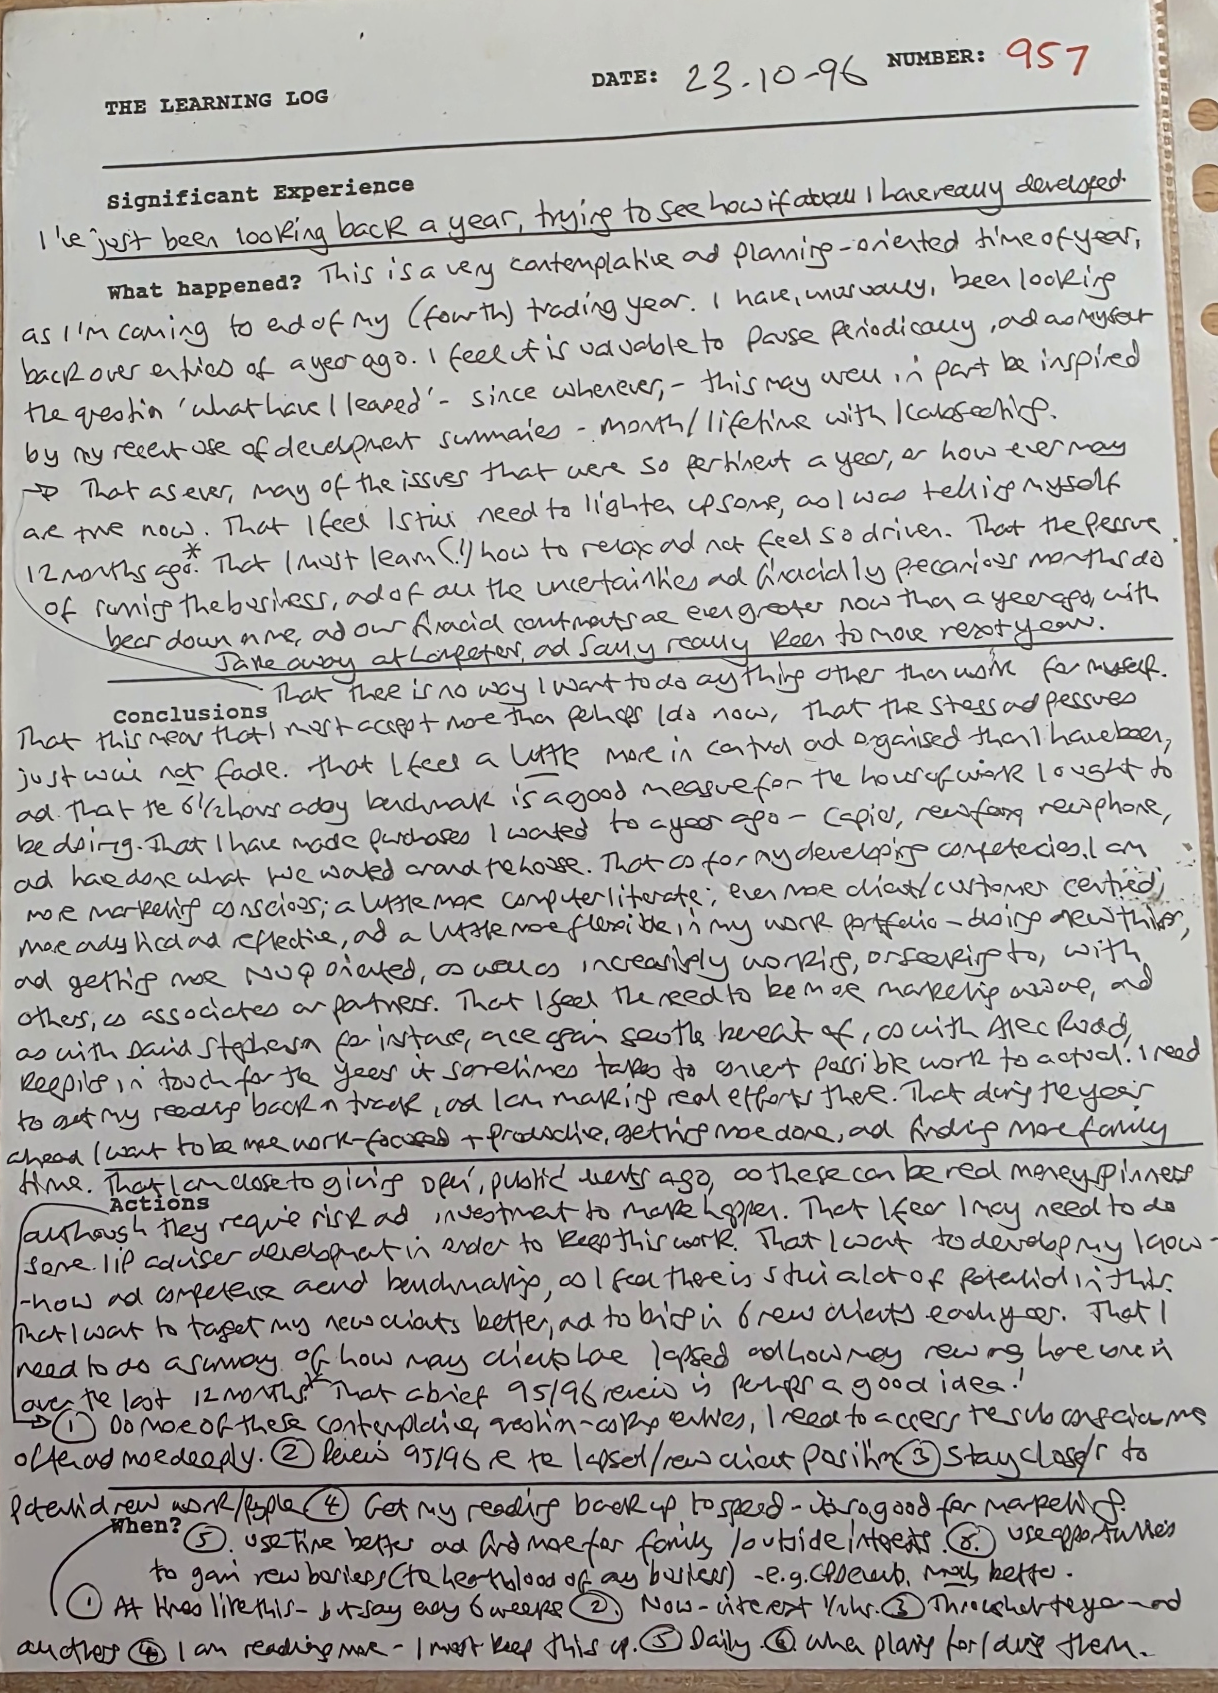 THE LEARNING LOG DATE: 23-10-96 NUMBER: 957
Significant Experience
I've just been looking back a year, trying to see how if at all I have really developed.
What happened? This is a very contemplative ad planning-oriented time of year,
as I'm coming to end of my (fourth) trading year. I have, unusually, been looking
back over entries of a year ago. I feel it is valuable to pause periodically, ad ask myself
the question 'what have I learned' - since whenever, - this may well in part be inspired
by my recent use of development summaries - month/lifetime with
→ That as ever, many of the issues that were so pertinent a year, or however many
are true now. That I feel I still need to lighten up some, as I was telling myself
12 months ago.* That I must learn (!) how to relax ad not feel so driven. That the pressure
of running the business, ad of all the uncertainties ad financially precarious months do
bear down on me, ad our financial commitments are even greater now than a year ago, with
Jane away at ad Sally really keen to move next year.
That there is no way I want to do anything other than work for myself.
Conclusions
That this means that I must accept more than perhaps I do now, that the stress ad pressures
just will not fade. That I feel a little more in control ad organised than I have been,
ad that the 6½ hours a day benchmark is a good measure for the hours of work I ought to
be doing. That I have made purchases I wanted to a year ago - copier, new fax, new phone,
ad have done what we wanted around the house. That as for my developing competencies, I am
more marketing conscious; a little more computer literate; even more client/customer centred;
more analytical ad reflective, ad a little more flexible in my work portfolio - doing new things,
ad getting more NVQ oriented, as well as increasingly working, or seeking to, with
others, as associates or partners. That I feel the need to be more marketing aware, and
as with David Stephenson for instance, once again see the benefit of, as with Alec Rudd,
keeping in touch for the years it sometimes takes to convert possible work to actual. I need
to get my reading back on track, ad I am making real efforts there. That during the year
ahead I want to be more work-focused + productive, getting more done, ad finding more family
time. That I am close to giving 'open', public events a go, as these can be real money spinners
Actions
although they require risk ad investment to make happen. That I fear I may need to do
some IIP adviser development in order to keep this work. That I want to develop my know-
-how ad competence around benchmarking, as I feel there is still a lot of potential in this.
That I want to target my new clients better, ad to bring in 6 new clients each year. That I
need to do a summary of how many clients have lapsed ad how many new ones have come in
over the last 12 months.* That a brief 95/96 review is perhaps a good idea!
→ ① Do more of these contemplative, question-asking entries, I need to access the subconscious me
often ad more deeply. ② Review 95/96 re the lapsed/new client position ③ Stay close/r to
potential new work/people ④ Get my reading back up to speed - its so good for marketing.
When?
⑤. Use time better ad find more for family/outside interests. ⑥. Use opportunities
to gain new business (the heartblood of any business) - e.g. much better.
① At times like this - but say every 6 weeks ②. Now - interest ½ hr. ③ Throughout the year - ad
all others ④ I am reading more - I must keep this up. ⑤ Daily. ⑥. When planning for/doing them.